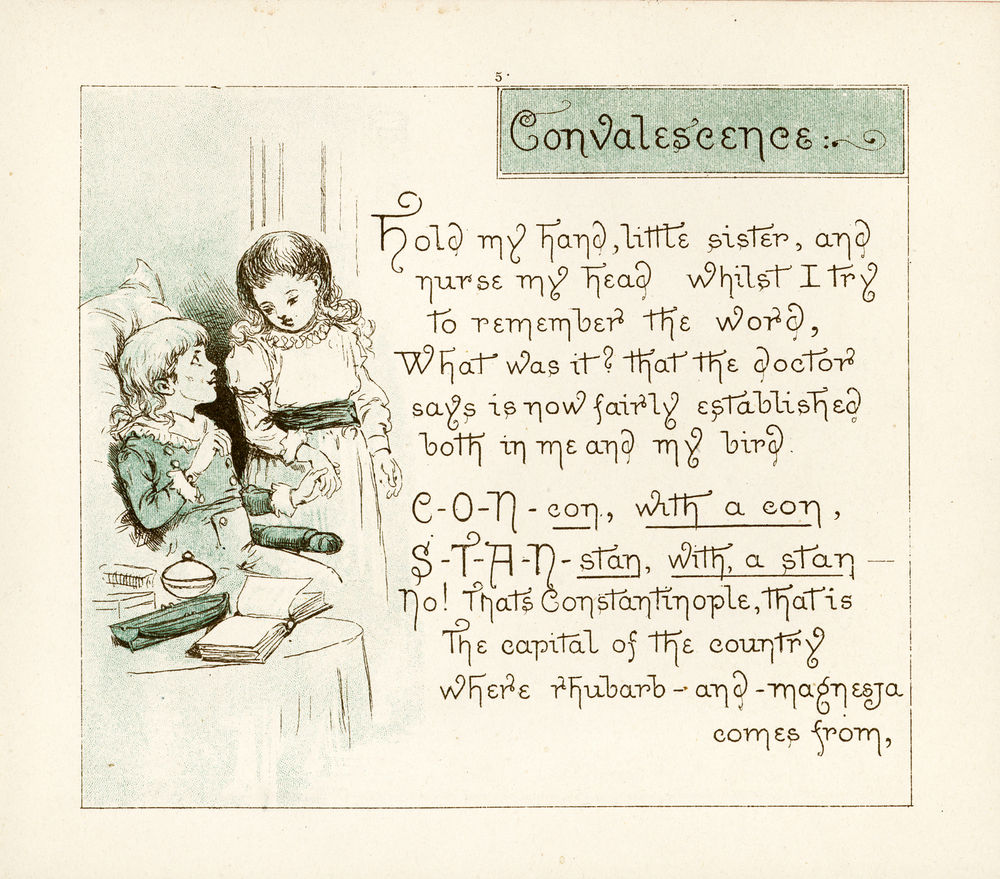 5.
Convalescence:
Hold my hand, little sister, and
nurse my head whilst I try
to remember the word,
What was it? that the doctor
says is now fairly established
both in me and my bird.
C-O-N-con, with a con,
S-T-A-N-stan, with, a stan —
No! That's Constantinople, that is
The capital of the country
where rhubarb-and-magnesia
comes from,